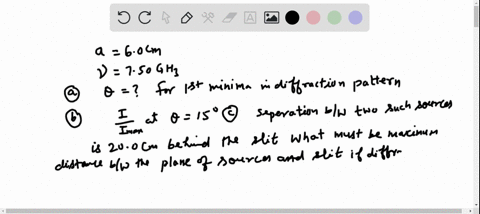 a = 6.0cm
ν = 7.50 GHz
ⓐ θ = ? for 1st minima in diffraction pattern
ⓑ I/Imax at θ = 15° ⓒ seperation b/w two such sources
is 20.0cm behind the slit what must be maximum
distance b/w the plane of sources and slit if diffr